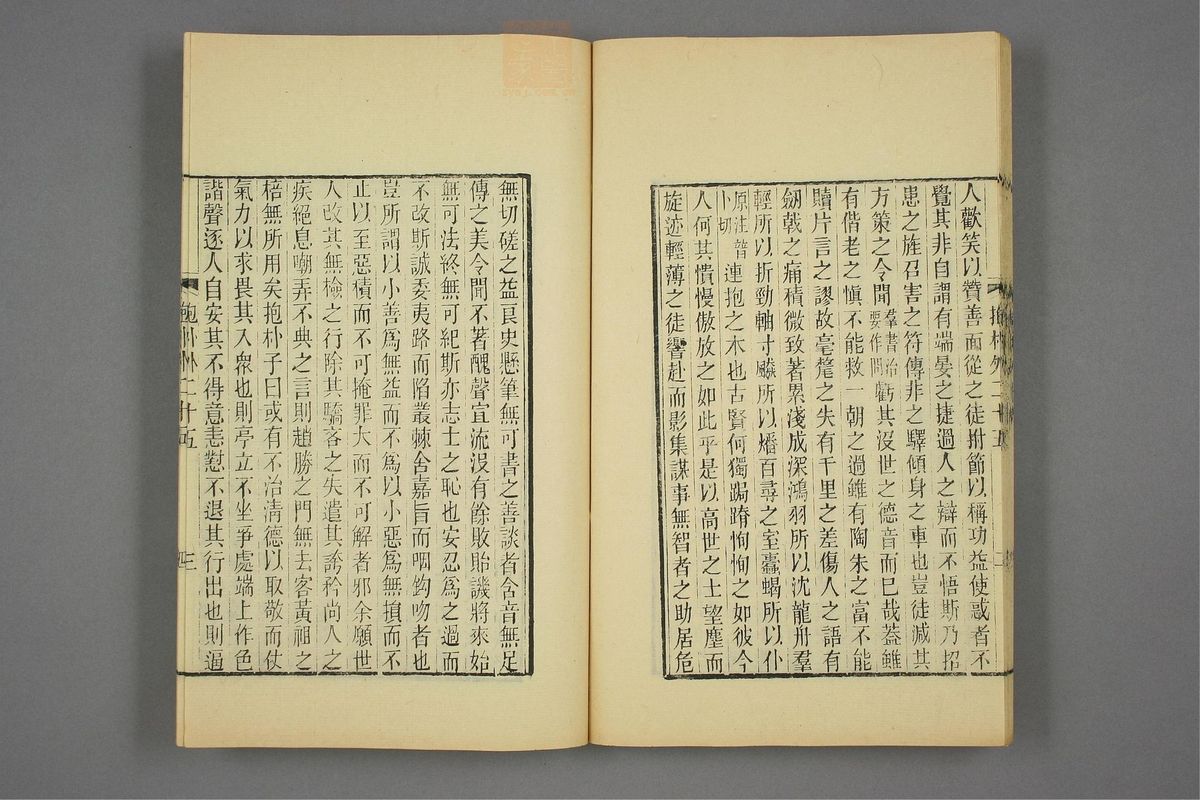 人歡笑以贊善面從之徒拊節以稱功益使惑者不
覺其非自謂有端晏之捷過人之辯而不悟斯乃招
患之旌召害之符傳非之驛傾身之車也豈徒減其
方策之令聞羣書治要作問虧其沒世之德音而已哉葢雖
有偕老之愼不能救一朝之過雖有陶朱之富不能
贖片言之謬故毫氂之失有千里之差傷人之語有
劒戟之痛積微致著累淺成深鴻羽所以沈龍舟羣
輕所以折勁軸寸飈所以燔百尋之室蠹蝎所以仆
原注普卜切連抱之木也古賢何獨跼蹐恂恂之如彼今
人何其憒慢傲放之如此乎是以高世之士望塵而
旋迹輕薄之徒響赴而影集謀事無智者之助居危
抱朴外二十五
無切磋之益良史懸筆無可書之善談者含音無足
傳之美令聞不著醜聲宣流沒有餘敗貽譏將來始
無可法終無可紀斯亦志士之恥也安忍爲之過而
不改斯誠委夷路而陷叢棘舍嘉旨而咽鉤吻者也
豈所謂以小善爲無益而不爲以小惡爲無損而不
止以至惡積而不可掩罪大而不可解者邪余願世
人改其無檢之行除其驕吝之失遣其誇矜尚人之
疾絕息嘲弄不典之言則趙勝之門無去客黃祖之
棓無所用矣抱朴子曰或有不治淸德以取敬而仗
氣力以求畏其入衆也則亭立不坐爭處端上作色
諧聲逐人自安其不得意恚懟不退其行出也則逼